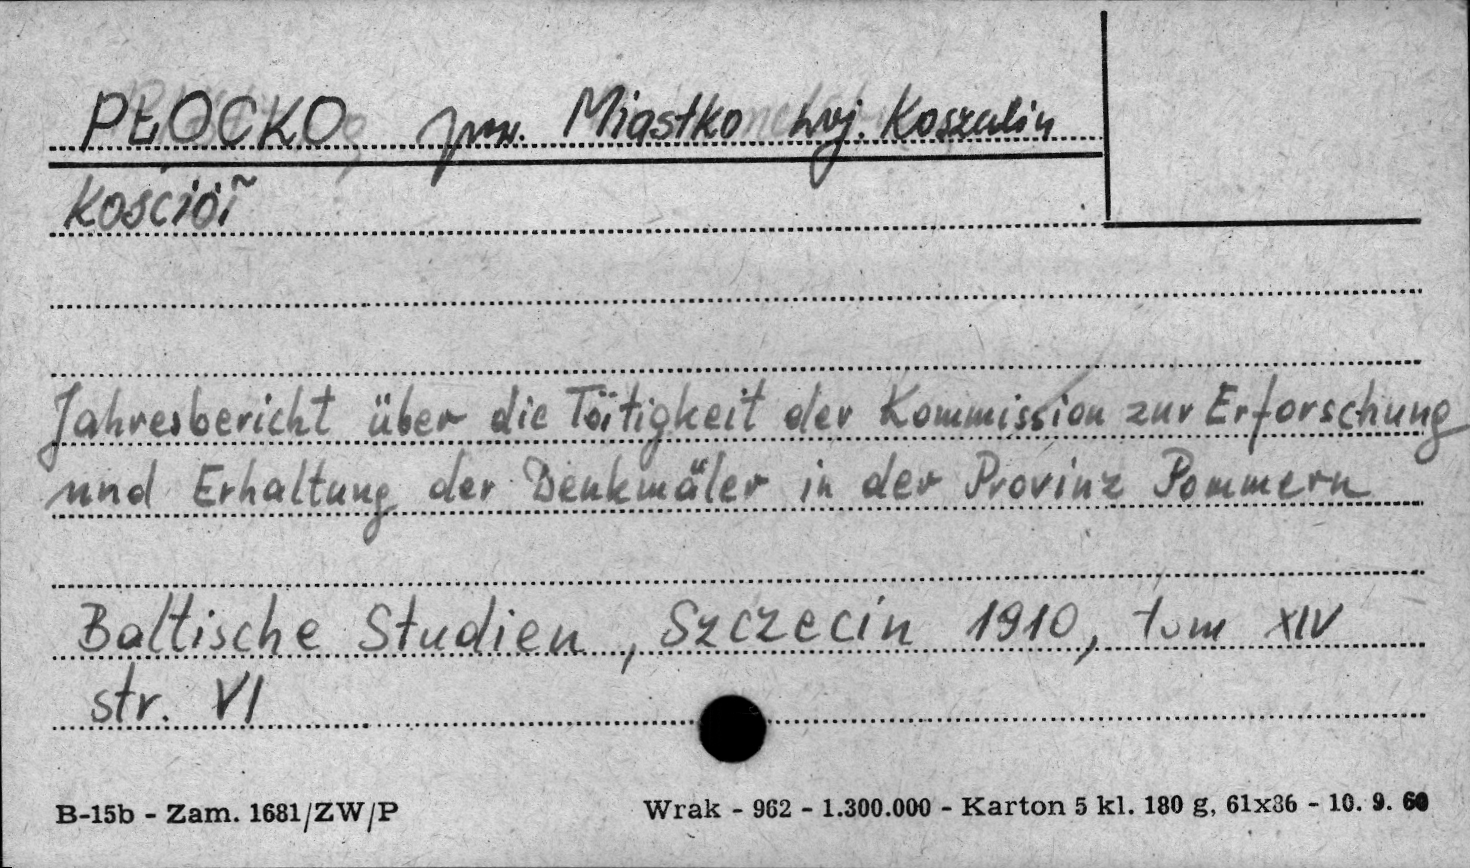 PŁOCKO pow. Miastko woj. Koszalin
Kościół
Jahresbericht über die Tätigkeit der Kommission zur Erforschung
und Erhaltung der Denkmäler in der Provinz Pommern
Baltische Studien, Szczecin 1910, tom XIV
str. VI
B-15b - Zam. 1681/ZW/P Wrak - 962 - 1.300.000 - Karton 5 kl. 180 g, 61x86 - 10. 9. 60